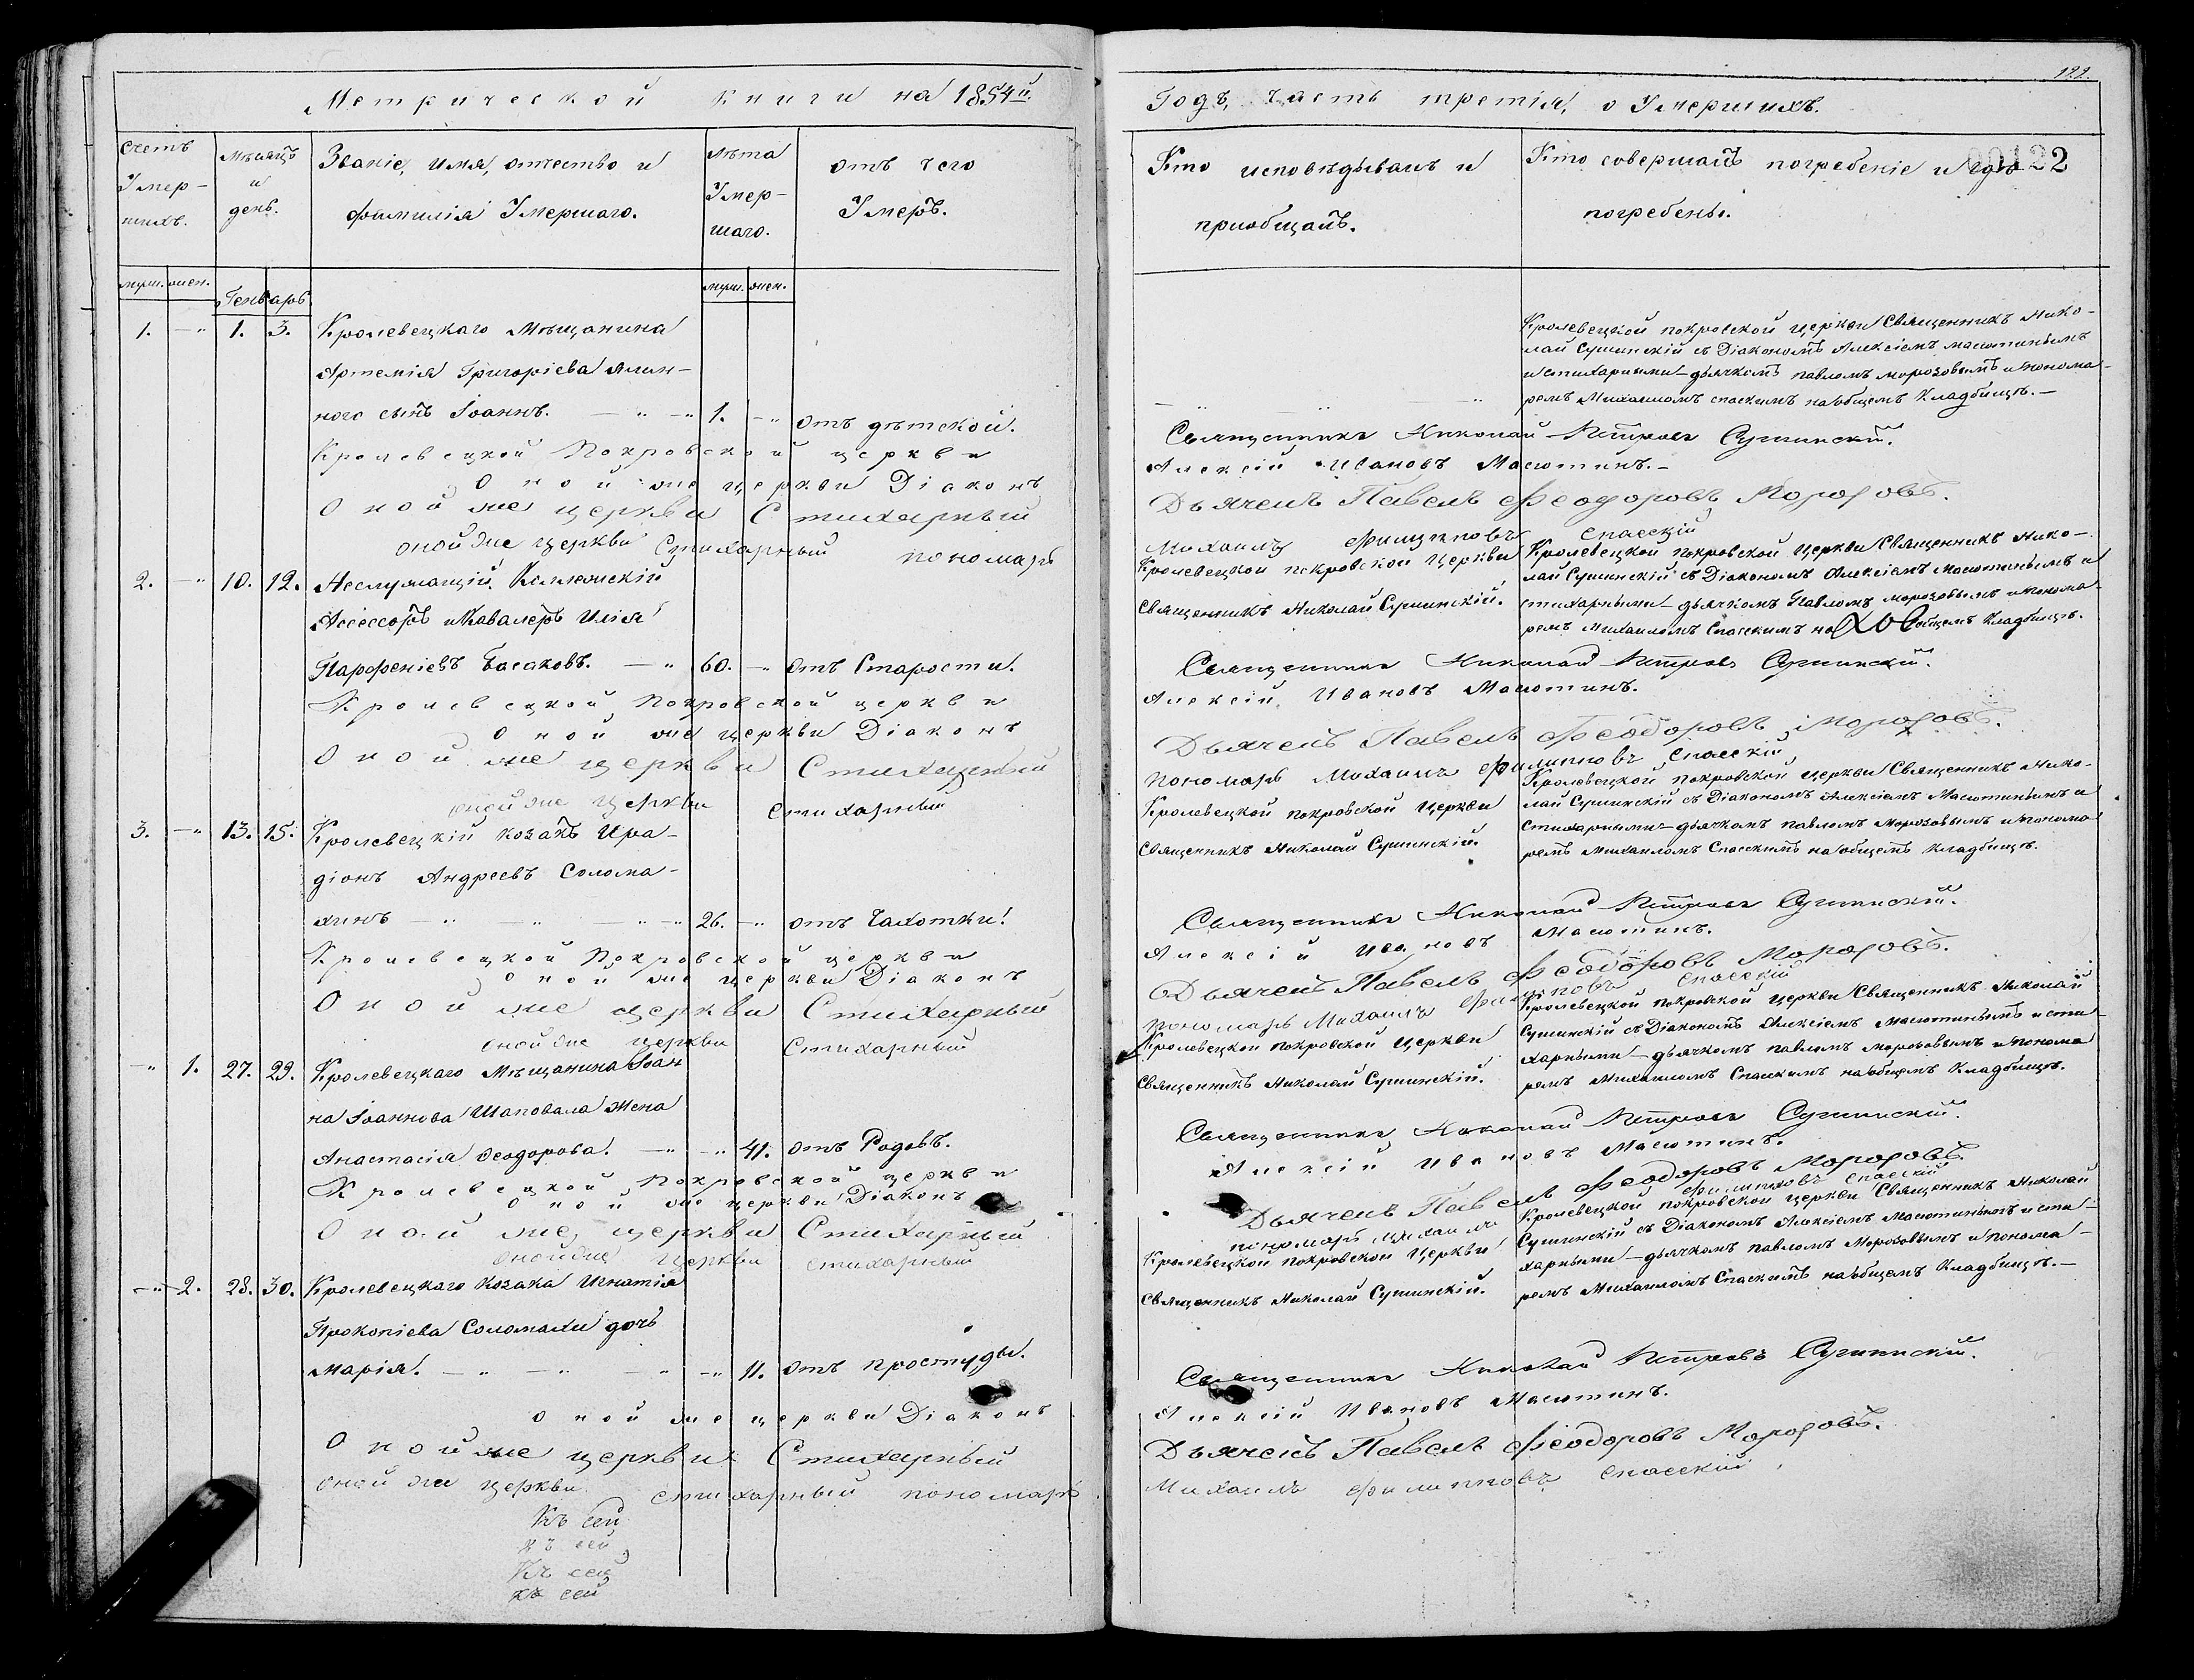 Метрической книги на 1854й.
Счетъ Умер-шихъ.
Мѣсяцъ и день.
Званіе, имя, отчество и фамилія Умершаго.
Лѣта Умер-шаго.
Отъ чего Умеръ.
муж. жен.
Генварь
муж. жен.
1. —„ 1. 3. Кролевецкаго Мѣщанина
Артемія Григоріева
ного сынъ Іоаннъ. — „ — 1. —„ отъ дѣтской.
Кролевецкой Покровской церкви
Оной же церкви Діаконъ
Оной же церкви Стихарный
оной же церкви Стихарный пономарь
2. —„ 10. 12. Неслужащій Коллежскій
Ассессоръ и Кавалеръ Илія
Парфеніевъ Басаковъ. — „ 60. —„ отъ Старости.
Кролевецкой Покровской церкви
Оной же церкви Діаконъ
Оной же церкви Стихарный
оной же церкви Стихарный
3. —„ 13. 15. Кролевецкій козакъ Ира-
діонъ Андреевъ Солома-
хинъ — „ — „ — „ — 26. —„ отъ Чахотки.
Кролевецкой Покровской церкви
Оной же церкви Діаконъ
Оной же церкви Стихарный
оной же церкви Стихарный
—„ 1. 27. 29. Кролевецкаго Мѣщанина Іоан
на Іоаннова Шаповала жена
Анастасія Ѳеодорова. — „ — „ 41. отъ Родовъ.
Кролевецкой Покровской церкви
Оной же церкви Діаконъ
Оной же церкви Стихарный
оной же церкви стихарный
—„ 2. 28. 30. Кролевецкаго Козака Игнатія
Прокопіева Соломахи дочь
Марія. — „ — „ — „ — „ 11. отъ простуды.
Оной же церкви Діаконъ
Оной же церкви Стихарный
оной же церкви стихарный пономарь
Къ сей
къ сей
Къ сей
къ сей
122.
Годъ, часть третія, о Умершихъ.
00122
Кто исповѣдывалъ и
пріобщалъ.
Кто совершалъ погребеніе и гдѣ
погребены.
Кролевецкой покровской церкви Священникъ Нико-
лай Сушинскій съ Діакономъ Алексіемъ Масютинымъ
и стихарными — дьячкомъ павломъ морозовымъ и понома-
ремъ Михаиломъ спаскимъ на общемъ Кладбищѣ.—
Священникъ Николай Петровъ Сушинскій.
Алексій Ивановъ Масютинъ.—
Дьячекъ Павелъ Феодоровъ Морозовъ.
Михаилъ Филипповъ Спасскій
Кролевецкой покровской Церкви
Священникъ Николай Сушинскій.
Кролевецкой покровской Церкви Священникъ Нико-
лай Сушинскій съ Діакономъ Алексіемъ Масютинымъ и
стихарными — дьячкомъ Павломъ морозовымъ и понома-
ремъ Михаиломъ Спасскимъ на общемъ Кладбищѣ.
Священникъ Николай Петровъ Сушинскій.
Алексій Ивановъ Масютинъ.
Дьячекъ Павелъ Феодоровъ Морозовъ.
пономарь Михаилъ Филипповъ Спасскій
Кролевецкой покровской Церкви
Священникъ Николай Сушинскій.
Кролевецкой покровской церкви Священникъ Нико-
лай Сушинскій съ Діакономъ Алексіемъ Масютинымъ и
стихарными — дьячкомъ павломъ Морозовымъ и понома
ремъ Михаиломъ Спасскимъ на общемъ Кладбищѣ.
Священникъ Николай Петровъ Сушинскій.
Алексій Ивановъ Масютинъ.
Дьячекъ Павелъ Феодоровъ Морозовъ.
пономарь Михаилъ Филипповъ Спасскій
Кролевецкой покровской Церкви
Священникъ Николай Сушинскій.
Кролевецкой покровской церкви Священникъ Николай
Сушинскій съ Діакономъ Алексіемъ Масютинымъ и сти-
харными — дьячкомъ павломъ морозовымъ и понома
ремъ Михаиломъ Спасскимъ на общемъ Кладбищѣ.
Священникъ Николай Петровъ Сушинскій.
Алексій Ивановъ Масютинъ.
Дьячекъ Павелъ Феодоровъ Морозовъ.
пономарь Михаилъ Филипповъ Спасскій
Кролевецкой покровской Церкви
Священникъ Николай Сушинскій.
Кролевецкой покровской церкви Священникъ Николай
Сушинскій съ Діакономъ Алексіемъ Масютинымъ и сти-
харными — дьячкомъ павломъ Морозовымъ и понома-
ремъ Михаиломъ Спаскимъ на общемъ Кладбищѣ.—
Священникъ Николай Петровъ Сушинскій.
Алексій Ивановъ Масютинъ.
Дьячекъ Павелъ Феодоровъ Морозовъ.
Михаилъ Филипповъ Спасскій